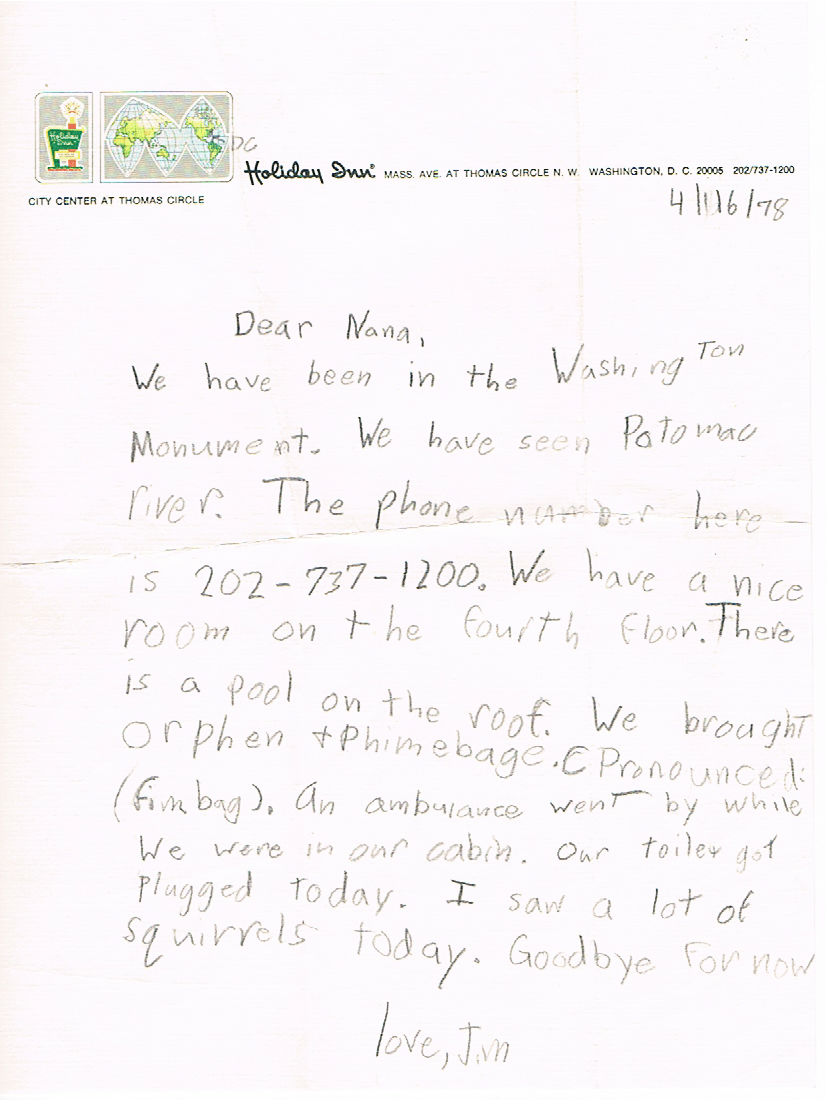 Holiday Inn
DC
Holiday Inn® MASS. AVE. AT THOMAS CIRCLE N. W. WASHINGTON, D. C. 20005 202/737-1200
CITY CENTER AT THOMAS CIRCLE
4/16/78
Dear Nana,
We have been in the Washington
Monument. We have seen Potomac
river. The phone number here
is 202-737-1200. We have a nice
room on the fourth floor. There
is a pool on the roof. We brought
Orphen + Phimebage. (Pronounced:
(fimbag). An ambulance went by while
We were in our cabin. Our toilet got
plugged today. I saw a lot of
squirrels today. Goodbye for now
love, Jim